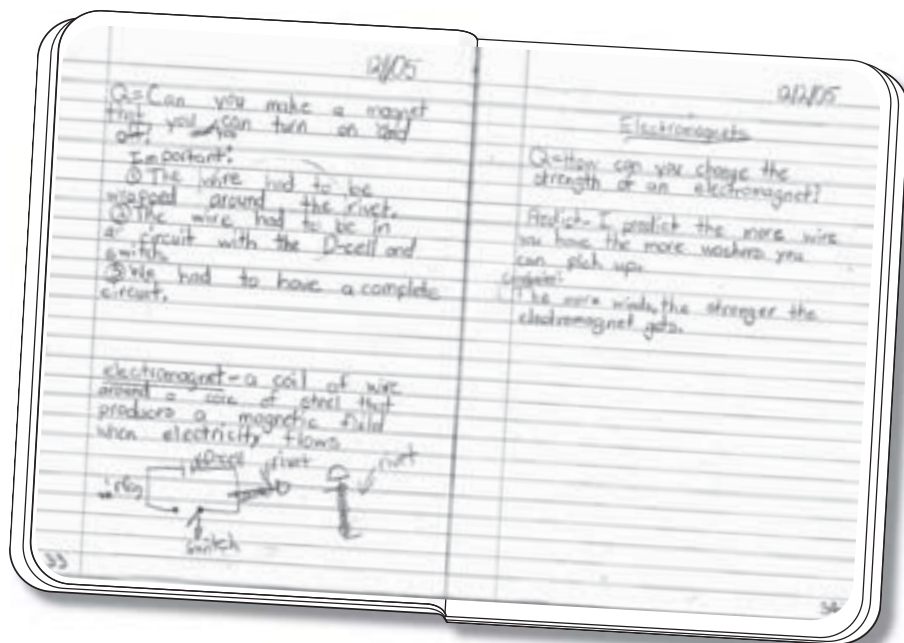 12/1/05
Q=Can you make a magnet
that you can turn on and
off?
Important:
① The wire had to be
wrapped around the rivet.
② The wire had to be in
a circuit with the D-cell and
switch
③ We had to have a complete
circuit.
electromagnet- a coil of wire
around a core of steel that
produces a magnetic field
when electricity flows
D-cell
rivet
rivet
switch
33
12/2/05
Electromagnets
Q=How can you change the
strength of an electromagnet?
Predict- I predict the more wire
you have the more washers you
can pick up.
The more winds, the stronger the
electromagnet gets.
34